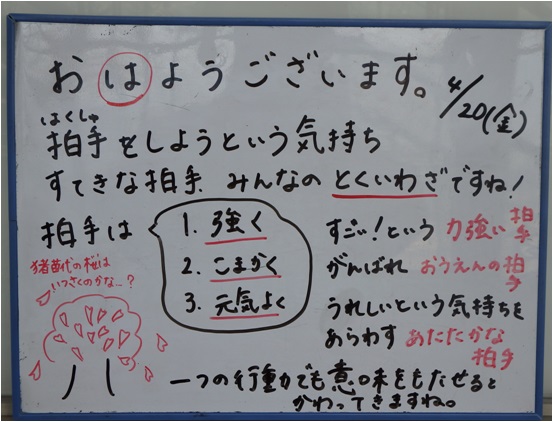 おはようございます。
4/20(金)
はくしゅ
拍手をしようという気持ち
すてきな拍手 みんなのとくいわざですね!
拍手は
1. 強く
2. こまかく
3. 元気よく
すごい!という 力強い拍手
がんばれ おうえんの拍手
うれしいという気持ちを
あらわす あたたかな
拍手
猪苗代の桜は
いつさくのかな…?
一つの行動でも意味をもたせると
かわってきますね。